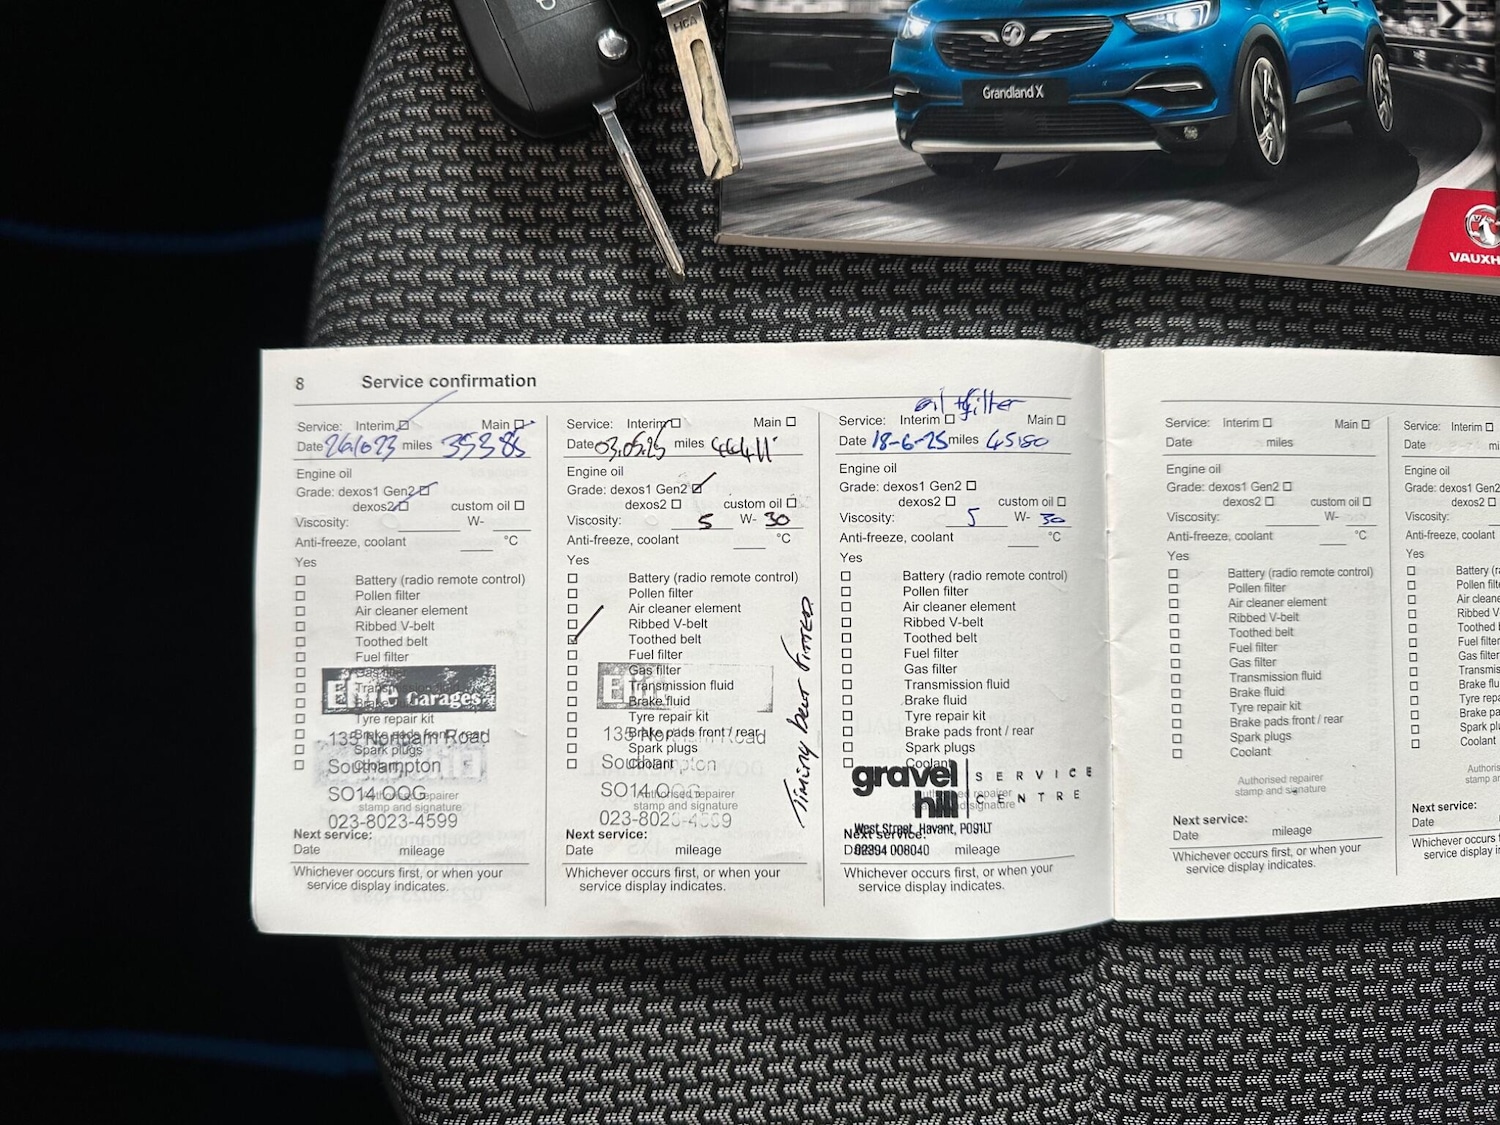 HCA
Grandland X
VAUXH
8 Service confirmation
Service: Interim ☐ Main ☐
Date miles 35385
Engine oil
Grade: dexos1 Gen2 ☐
dexos2 ☐ custom oil ☐
Viscosity: W-
Anti-freeze, coolant °C
Yes
☐ Battery (radio remote control)
☐ Pollen filter
☐ Air cleaner element
☐ Ribbed V-belt
☐ Toothed belt
☐ Fuel filter
☐ Gas filter
Elite Garages
☐ Tyre repair kit
135 Northam Road
Spark plugs
Southampton
SO14 0QG
Authorised repairer
stamp and signature
023-8023-4599
Next service:
Date mileage
Whichever occurs first, or when your
service display indicates.
Service: Interim ☐ Main ☐
Date 03.05.25 miles 44411
Engine oil
Grade: dexos1 Gen2 ☑
dexos2 ☐ custom oil ☐
Viscosity: 5 W- 30
Anti-freeze, coolant °C
Yes
☐ Battery (radio remote control)
☐ Pollen filter
☐ Air cleaner element
☐ Ribbed V-belt
☑ Toothed belt
☐ Fuel filter
☐ Gas filter
☐ Transmission fluid
☐ Brake fluid
☐ Tyre repair kit
☐ Brake pads front / rear
135 Northam Road
☐ Spark plugs
☐ Coolant
Southampton
SO14 0QG
Authorised repairer
stamp and signature
023-8023-4599
Next service:
Date mileage
Whichever occurs first, or when your
service display indicates.
Timing belt fitted
oil + filter
Service: Interim ☐ Main ☐
Date 18-6-25 miles 45180
Engine oil
Grade: dexos1 Gen2 ☐
dexos2 ☐ custom oil ☐
Viscosity: 5 W- 30
Anti-freeze, coolant °C
Yes
☐ Battery (radio remote control)
☐ Pollen filter
☐ Air cleaner element
☐ Ribbed V-belt
☐ Toothed belt
☐ Fuel filter
☐ Gas filter
☐ Transmission fluid
☐ Brake fluid
☐ Tyre repair kit
☐ Brake pads front / rear
☐ Spark plugs
☐ Coolant
gravel hill SERVICE CENTRE
West Street, Havant, PO91LT
Next service:
Date mileage
Whichever occurs first, or when your
service display indicates.
Service: Interim ☐ Main ☐
Date miles
Engine oil
Grade: dexos1 Gen2 ☐
dexos2 ☐ custom oil ☐
Viscosity: W-
Anti-freeze, coolant °C
Yes
☐ Battery (radio remote control)
☐ Pollen filter
☐ Air cleaner element
☐ Ribbed V-belt
☐ Toothed belt
☐ Fuel filter
☐ Gas filter
☐ Transmission fluid
☐ Brake fluid
☐ Tyre repair kit
☐ Brake pads front / rear
☐ Spark plugs
☐ Coolant
Authorised repairer
stamp and signature
Next service:
Date mileage
Whichever occurs first, or when your
service display indicates.
Service: Interim ☐
Date mi
Engine oil
Grade: dexos1 Gen2
dexos2 ☐
Viscosity:
Anti-freeze, coolant
Yes
☐ Battery (ra
☐ Pollen filte
☐ Air cleane
☐ Ribbed V-
☐ Toothed b
☐ Fuel filter
☐ Gas filter
☐ Transmis
☐ Brake flu
☐ Tyre repa
☐ Brake pa
☐ Spark plu
☐ Coolant
Authoris
stamp a
Next service:
Date
Whichever occurs fir
service display in